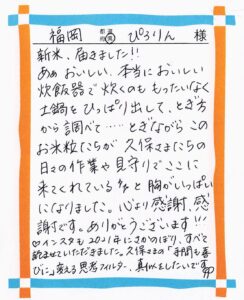 福岡 都道府県 ぴろりん 様
新米、届きました!!
あぁ おいしい、本当に おいしい
炊飯器で炊くのももったいなく
土鍋をひっぱり出して、とぎ方
から調べて… とぎながら この
お米粒たちが 久保さまたちの
日々の作業や見守りでここに
来てくれている〃〃と胸がいっぱい
になりました。心より感謝、感
謝です。ありがとうございます!!!
♡インスタも2021年にさかのぼり、すべて
読ませていただきました。久保さまの「手間も喜
びに」変える思考フィルター、真似をしたいです